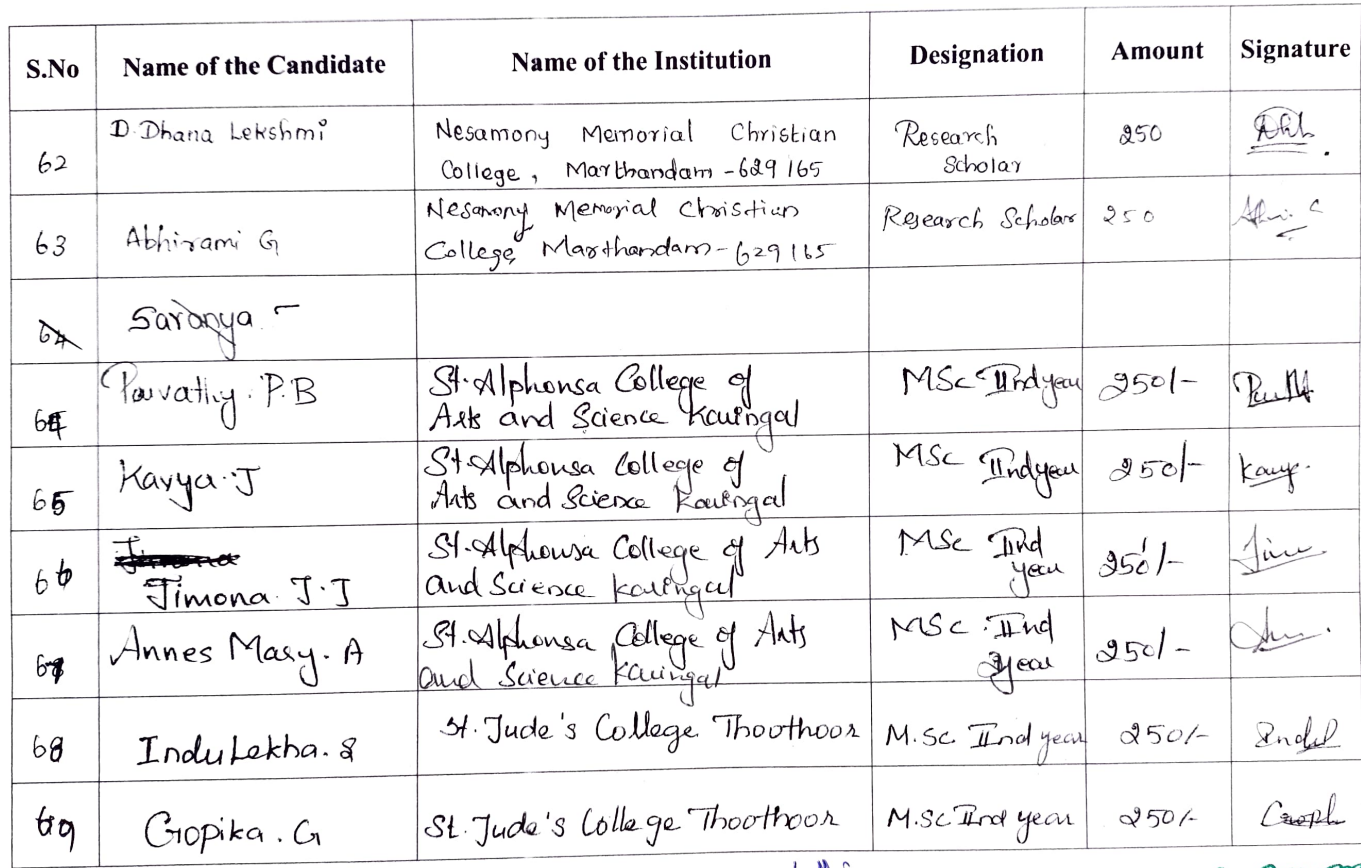 S.No Name of the Candidate Name of the Institution Designation Amount Signature
62 D. Dhana Lekshmi Nesamony Memorial Christian College, Marthandam - 629 165 Research Scholar 250
63 Abhirami G Nesamony Memorial Christian College, Marthandam - 629 165 Research Scholar 250
64 Saranya -
64 Parvathy. P.B St. Alphonsa College of Arts and Science Karingal MSc IInd year 250/-
65 Kavya. J St. Alphonsa College of Arts and Science Karingal MSc IInd year 250/- Kavya.
66 Jimona Jimona. J.J St. Alphonsa College of Arts and Science Karingal MSc IInd year 250/-
67 Annes Mary. A St. Alphonsa College of Arts and Science Karingal MSc. IInd year 250/-
68 Indu Lekha. S St. Jude's College Thoothoor M.Sc IInd year 250/-
69 Gopika. G St. Jude's College Thoothoor M.Sc IInd year 250/-